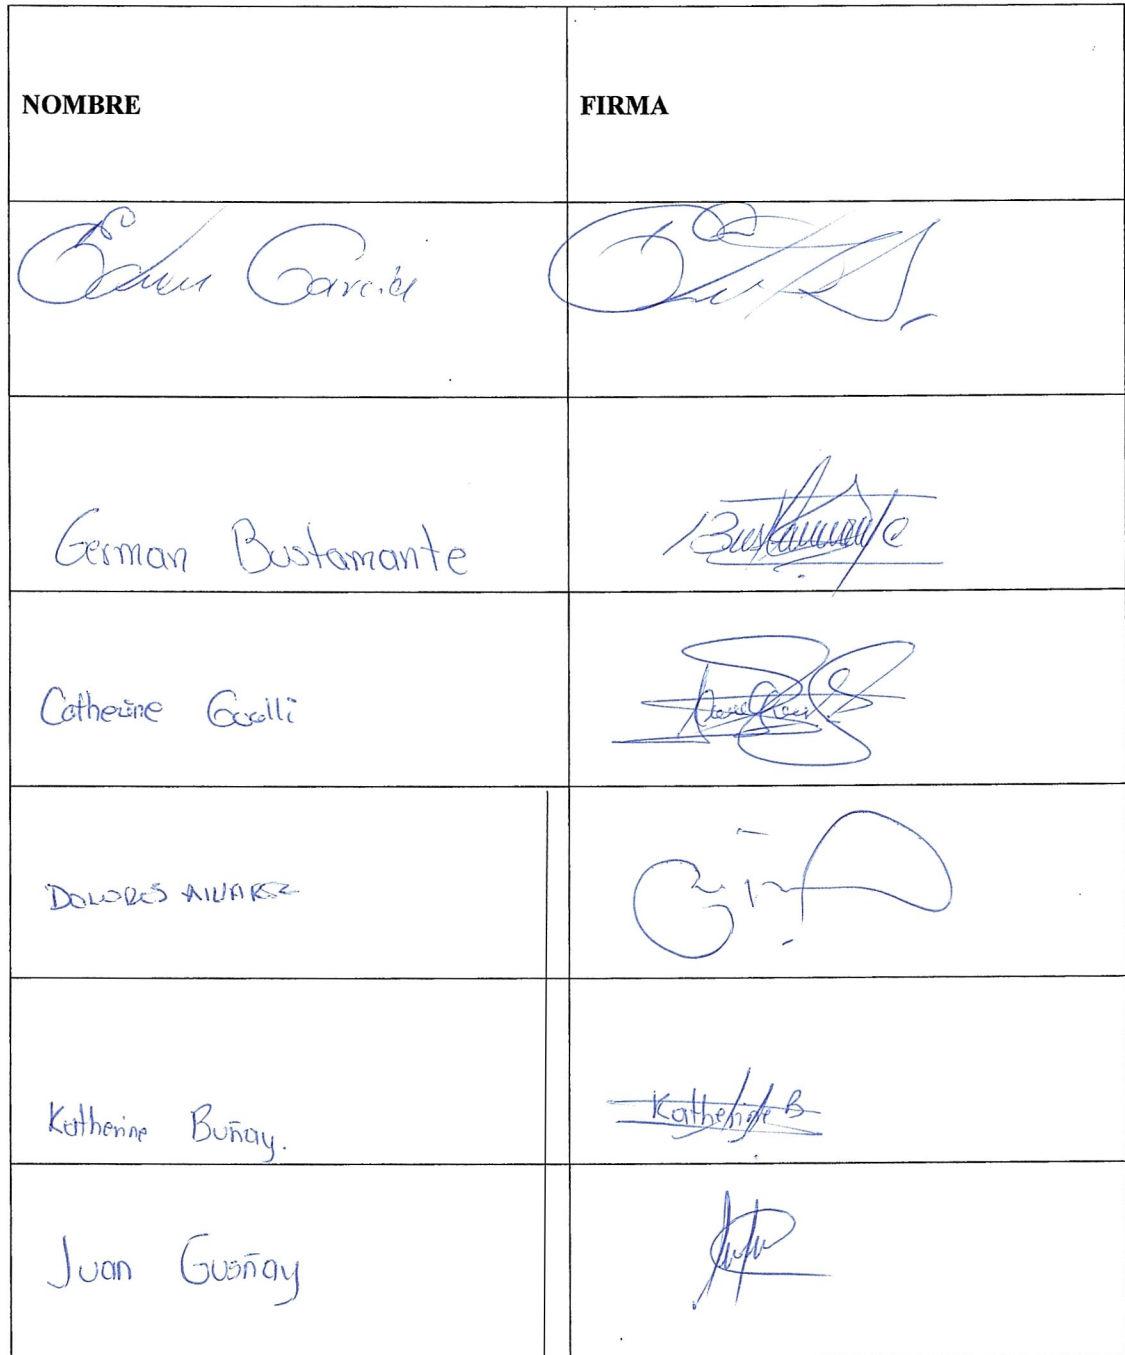 NOMBRE FIRMA
García
German Bustamante Bustamante
Catherine Gualli
DOLORES ALVAREZ
Katherine Buñay. Katherine B
Juan Guañay